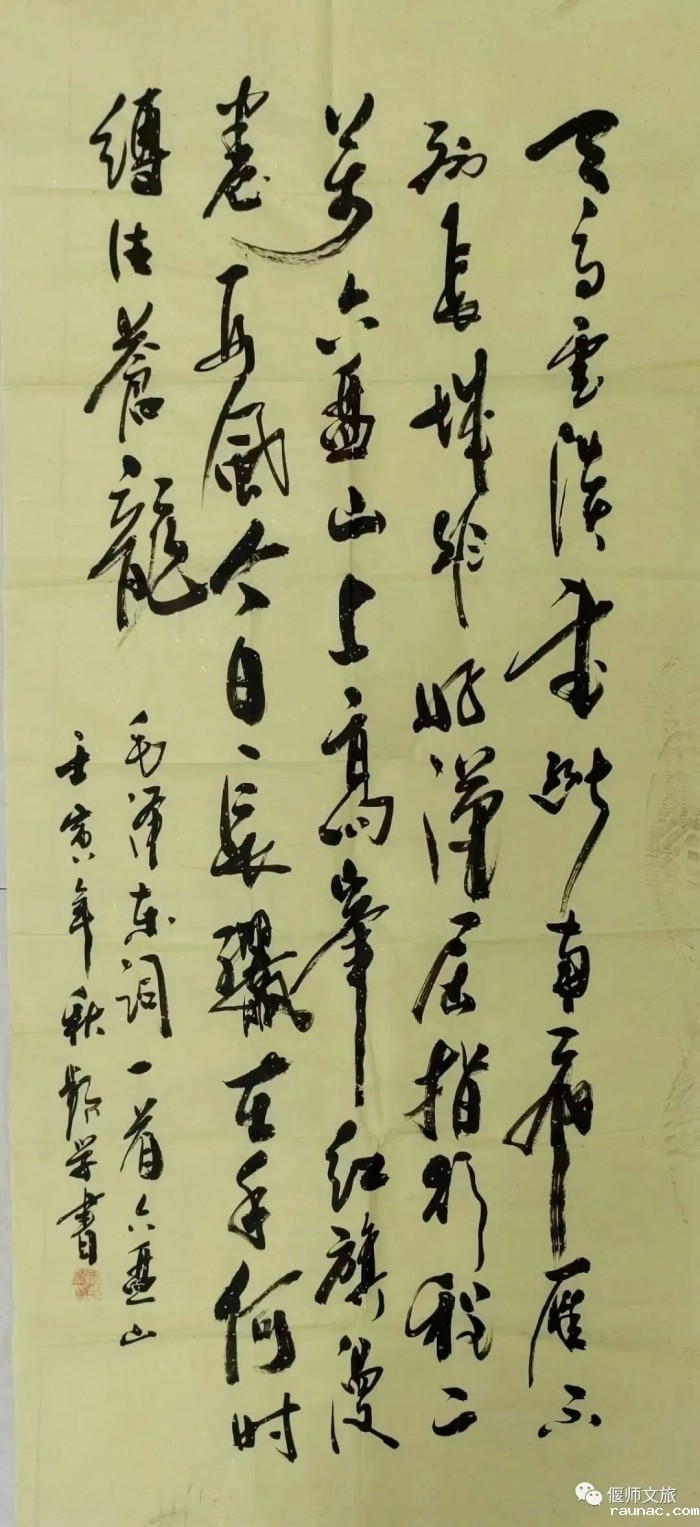 天高雲淡望断南飛雁不
到長城非好漢屈指行程二
萬六盘山上高峯红旗漫
卷西風今日長纓在手何时
縛住蒼龍
毛泽东词一首六盘山
壬寅年秋学書
偃师文旅
raunac.com